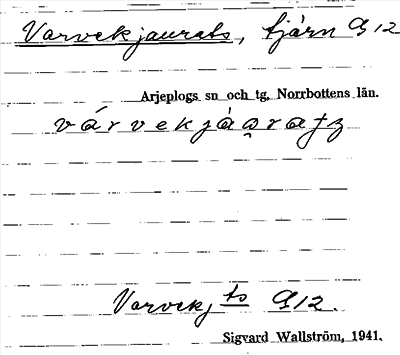 Varvekjaurats, tjärn G12
Arjeplogs sn och tg, Norrbottens län.
Varvekj ts G12.
Sigvard Wallström, 1941.